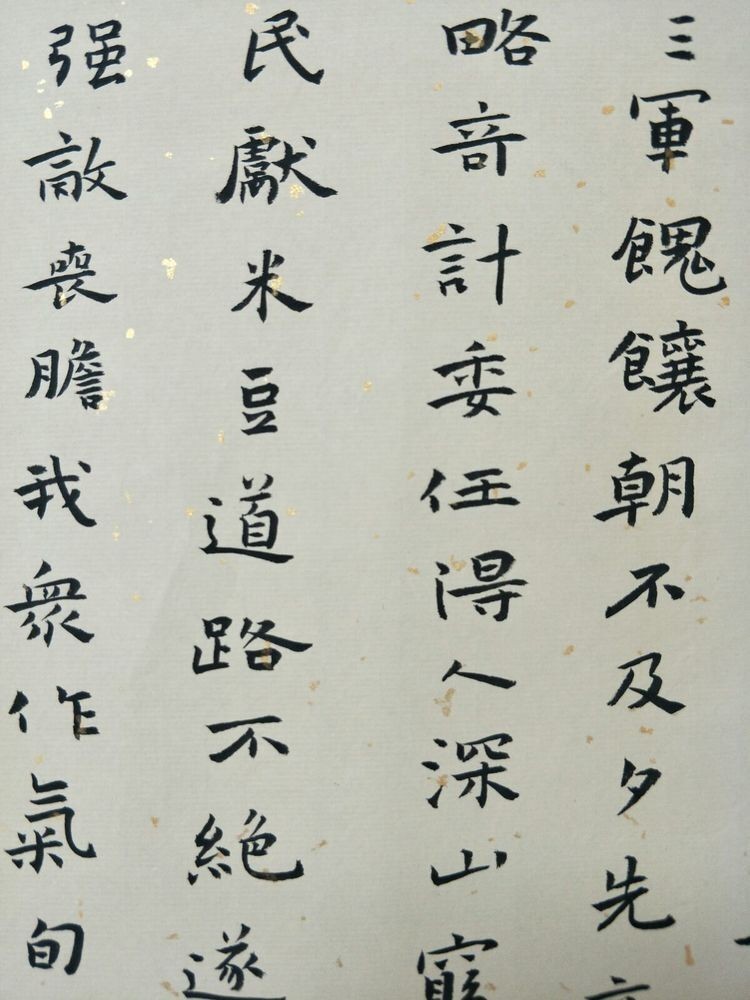 三軍餽饟朝不及夕先
略奇計委任得人深山窮
民獻米豆道路不絕遂
强敵喪膽我衆作氣旬